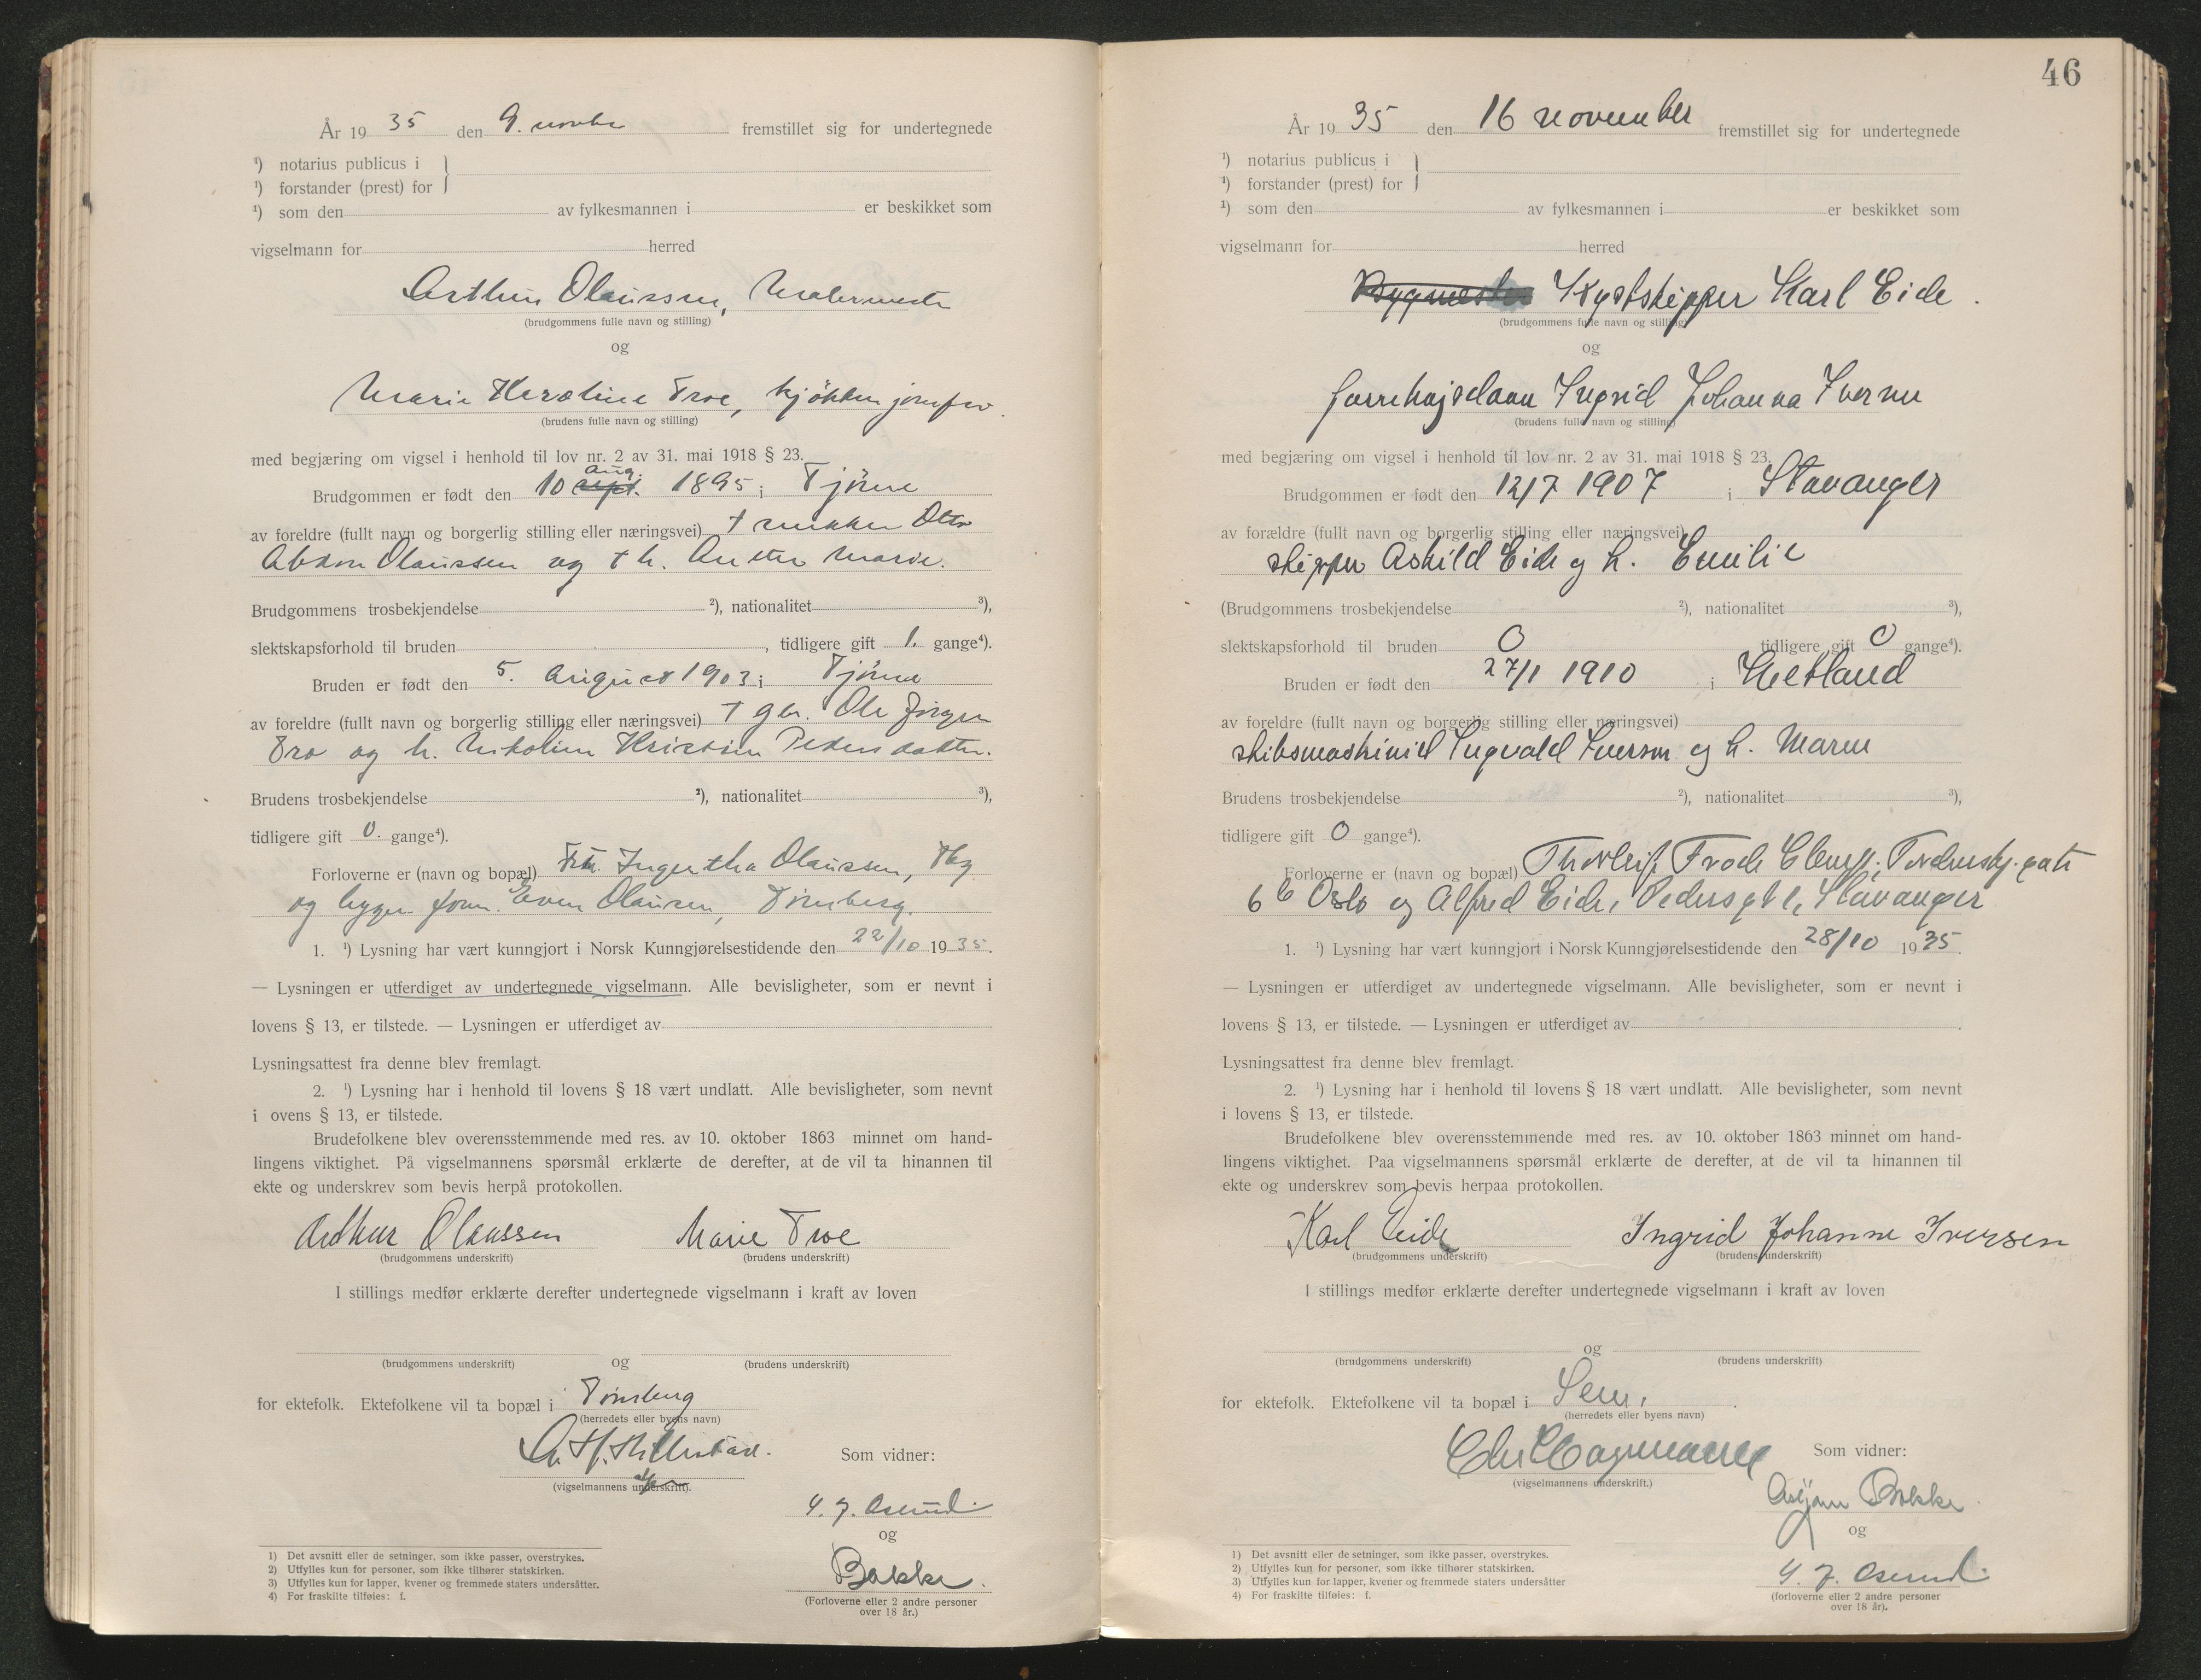 År 19 35 den 9. novbr fremstillet sig for undertegnede
¹) notarius publicus i
¹) forstander (prest) for
¹) som den av fylkesmannen i er beskikket som
vigselmann for herred
Arthur Olaussen, Malermester
(brudgommens fulle navn og stilling)
og
Marie Karoline Troe, kjökkenjomfru.
(brudens fulle navn og stilling)
med begjæring om vigsel i henhold til lov nr. 2 av 31. mai 1918 § 23.
aug.
Brudgommen er født den 10 sept. 1895 i Tjöme
av foreldre (fullt navn og borgerlig stilling eller næringsvei) † snekker
Olaussen og † h. Marie.
Brudgommens trosbekjendelse ²), nationalitet ³),
slektskapsforhold til bruden , tidligere gift 1. gange⁴).
Bruden er født den 5. august 1903 i Tjöme
av foreldre (fullt navn og borgerlig stilling eller næringsvei) † gbr. Ole Jörgen
Tro og h. Nikoline Kristine Pedersdatter.
Brudens trosbekjendelse ²), nationalitet ³),
tidligere gift 0. gange⁴).
Forloverne er (navn og bopæl) Olaussen,
og bygn. form. Even Olausen, Tönsberg.
1. ¹) Lysning har vært kunngjort i Norsk Kunngjørelsestidende den 22/10 19 35.
— Lysningen er utferdiget av undertegnede vigselmann. Alle bevisligheter, som er nevnt i
lovens § 13, er tilstede. — Lysningen er utferdiget av
Lysningsattest fra denne blev fremlagt.
2. ¹) Lysning har i henhold til lovens § 18 vært undlatt. Alle bevisligheter, som nevnt
i ovens § 13, er tilstede.
Brudefolkene blev overensstemmende med res. av 10. oktober 1863 minnet om hand-
lingens viktighet. På vigselmannens spørsmål erklærte de derefter, at de vil ta hinannen til
ekte og underskrev som bevis herpå protokollen.
Arthur Olaussen Marie Troe
(brudgommens underskrift) (brudens underskrift)
I stillings medfør erklærte derefter undertegnede vigselmann i kraft av loven
og
(brudgommens underskrift) (brudens underskrift)
for ektefolk. Ektefolkene vil ta bopæl i Tönsberg
(herredets eller byens navn)
Som vidner:
(vigselmannens underskrift).
og
Bakke.
(Forloverne eller 2 andre personer
over 18 år.)
1) Det avsnitt eller de setninger, som ikke passer, overstrykes.
2) Utfylles kun for personer, som ikke tilhører statskirken.
3) Utfylles kun for lapper, kvener og fremmede staters undersåtter.
4) For fraskilte tilføies: f.
46
År 19 35 den 16 november fremstillet sig for undertegnede
¹) notarius publicus i
¹) forstander (prest) for
¹) som den av fylkesmannen i er beskikket som
vigselmann for herred
Bygmester Kystskipper Karl Eide.
(brudgommens fulle navn og stilling)
og
Ingrid Johanna Iversen
(brudens fulle navn og stilling)
med begjæring om vigsel i henhold til lov nr. 2 av 31. mai 1918 § 23.
Brudgommen er født den 12/7 1907 i Stavanger
av forældre (fullt navn og borgerlig stilling eller næringsvei)
skipper Askild Eide og h. Emilie
(Brudgommens trosbekjendelse ²), nationalitet ³),
slektskapsforhold til bruden 0 tidligere gift 0 gange⁴).
Bruden er født den 27/1 1910 i Hetland
av foreldre (fullt navn og borgerlig stilling eller næringsvei)
skibsmaskinist Ingvald Iversen og h. Maren
Brudens trosbekjendelse ²), nationalitet ³),
tidligere gift 0 gange⁴).
Forloverne er (navn og bopæl) Thorleif Frode
6 b Oslo og Alfred Eide, Pedersgt 1, Stavanger
1. ¹) Lysning har vært kunngjort i Norsk Kunngjørelsestidende den 28/10 19 35.
— Lysningen er utferdiget av undertegnede vigselmann. Alle bevisligheter, som er nevnt i
lovens § 13, er tilstede. — Lysningen er utferdiget av .
Lysningsattest fra denne blev fremlagt.
2. ¹) Lysning har i henhold til lovens § 18 vært undlatt. Alle bevisligheter, som nevnt
i lovens § 13, er tilstede.
Brudefolkene blev overensstemmende med res. av 10. oktober 1863 minnet om hand-
lingens viktighet. Paa vigselmannens spørsmål erklærte de derefter, at de vil ta hinannen til
ekte og underskrev som bevis herpaa protokollen.
Karl Eide Ingrid Johanne Iversen
(brudgommens underskrift) (brudens underskrift)
I stillings medfør erklærte derefter undertegnede vigselmann i kraft av loven
og
(brudgommens underskrift) (brudens underskrift)
for ektefolk. Ektefolkene vil ta bopæl i Sem.
(herredets eller byens navn)
Som vidner:
(vigselmannens underskrift.)
Asbjørn Bakke.
og
(forloverne eller 2 andre personer
over 18 år).
1) Det avsnitt eller de setninger, som ikke passer, overstrykes.
2) Utfylles kun for personer, som ikke tilhører statskirken.
3) Utfylles kun for lapper, kvener og fremmede staters undersåtter
4) For fraskilte tilføies: f.